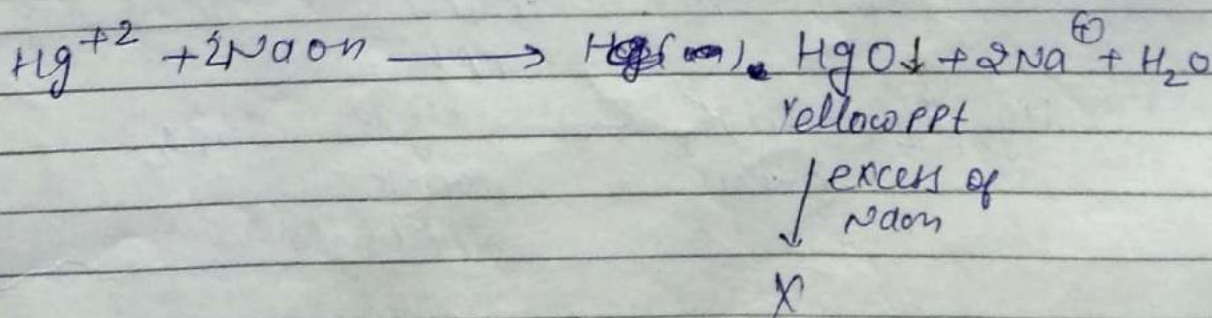 Hg⁺² + 2NaOH ⟶ HgO↓ + 2Na⊕ + H₂O
Yellow PPt
↓ excess of
NaOH
X